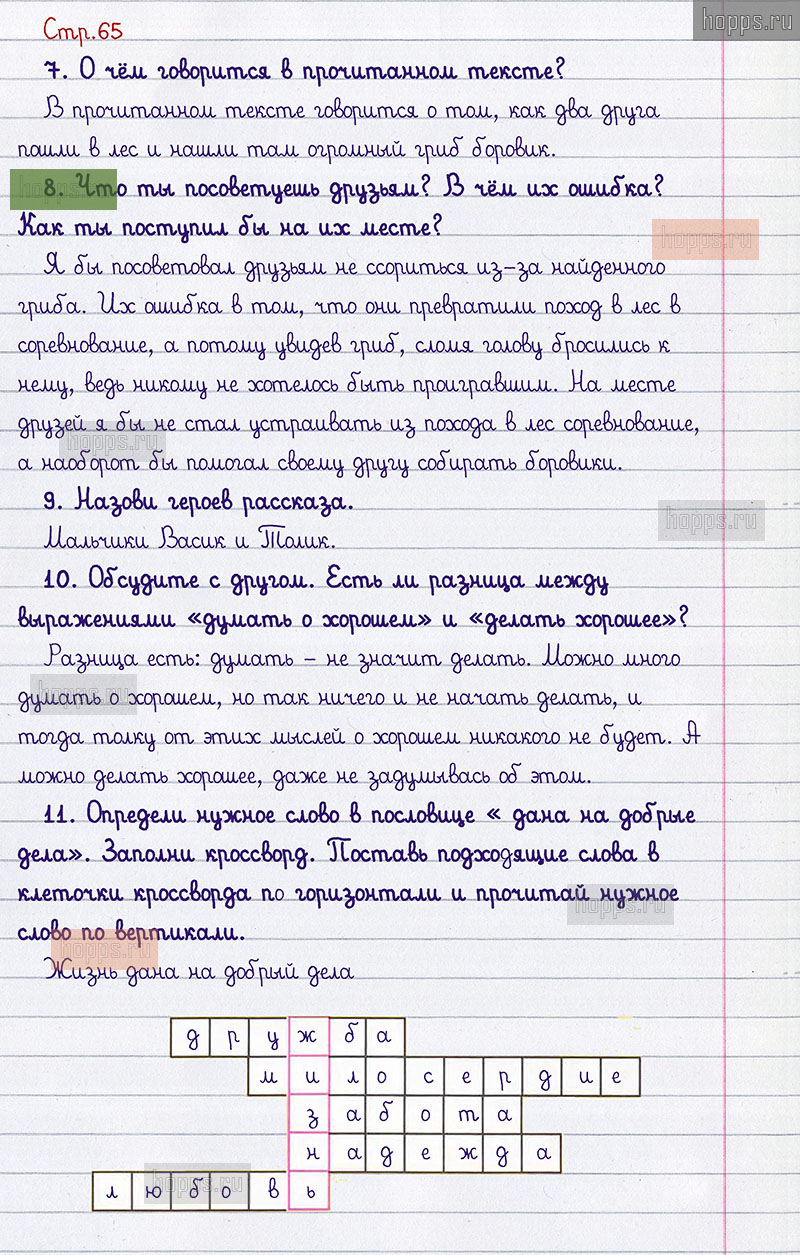 hopps.ru
Стр.65
7. О чём говорится в прочитанном тексте?
В прочитанном тексте говорится о том, как два друга
пошли в лес и нашли там огромный гриб боровик.
8. Что ты посоветуешь друзьям? В чём их ошибка?
hopps.ru
Как ты поступил бы на их месте?
hopps.ru
Я бы посоветовал друзьям не ссориться из-за найденного
гриба. Их ошибка в том, что они превратили поход в лес в
соревнование, а потому увидев гриб, сломя голову бросились к
нему, ведь никому не хотелось быть проигравшим. На месте
друзей я бы не стал устраивать из похода в лес соревнование,
hopps.ru
а наоборот бы помогал своему другу собирать боровики.
9. Назови героев рассказа.
hopps.ru
Мальчики Васик и Толик.
10. Обсудите с другом. Есть ли разница между
выражениями «думать о хорошем» и «делать хорошее»?
Разница есть: думать – не значит делать. Можно много
hopps.ru
думать о хорошем, но так ничего и не начать делать, и
тогда толку от этих мыслей о хорошем никакого не будет. А
можно делать хорошее, даже не задумывась об этом.
11. Определи нужное слово в пословице « дана на добрые
дела». Заполни кроссворд. Поставь подходящие слова в
клеточки кроссворда по горизонтали и прочитай нужное
hopps.ru
слово по вертикали.
hopps.ru
Жизнь дана на добрый дела
дружба
милосердие
забота
надежда
любовь
hopps.ru